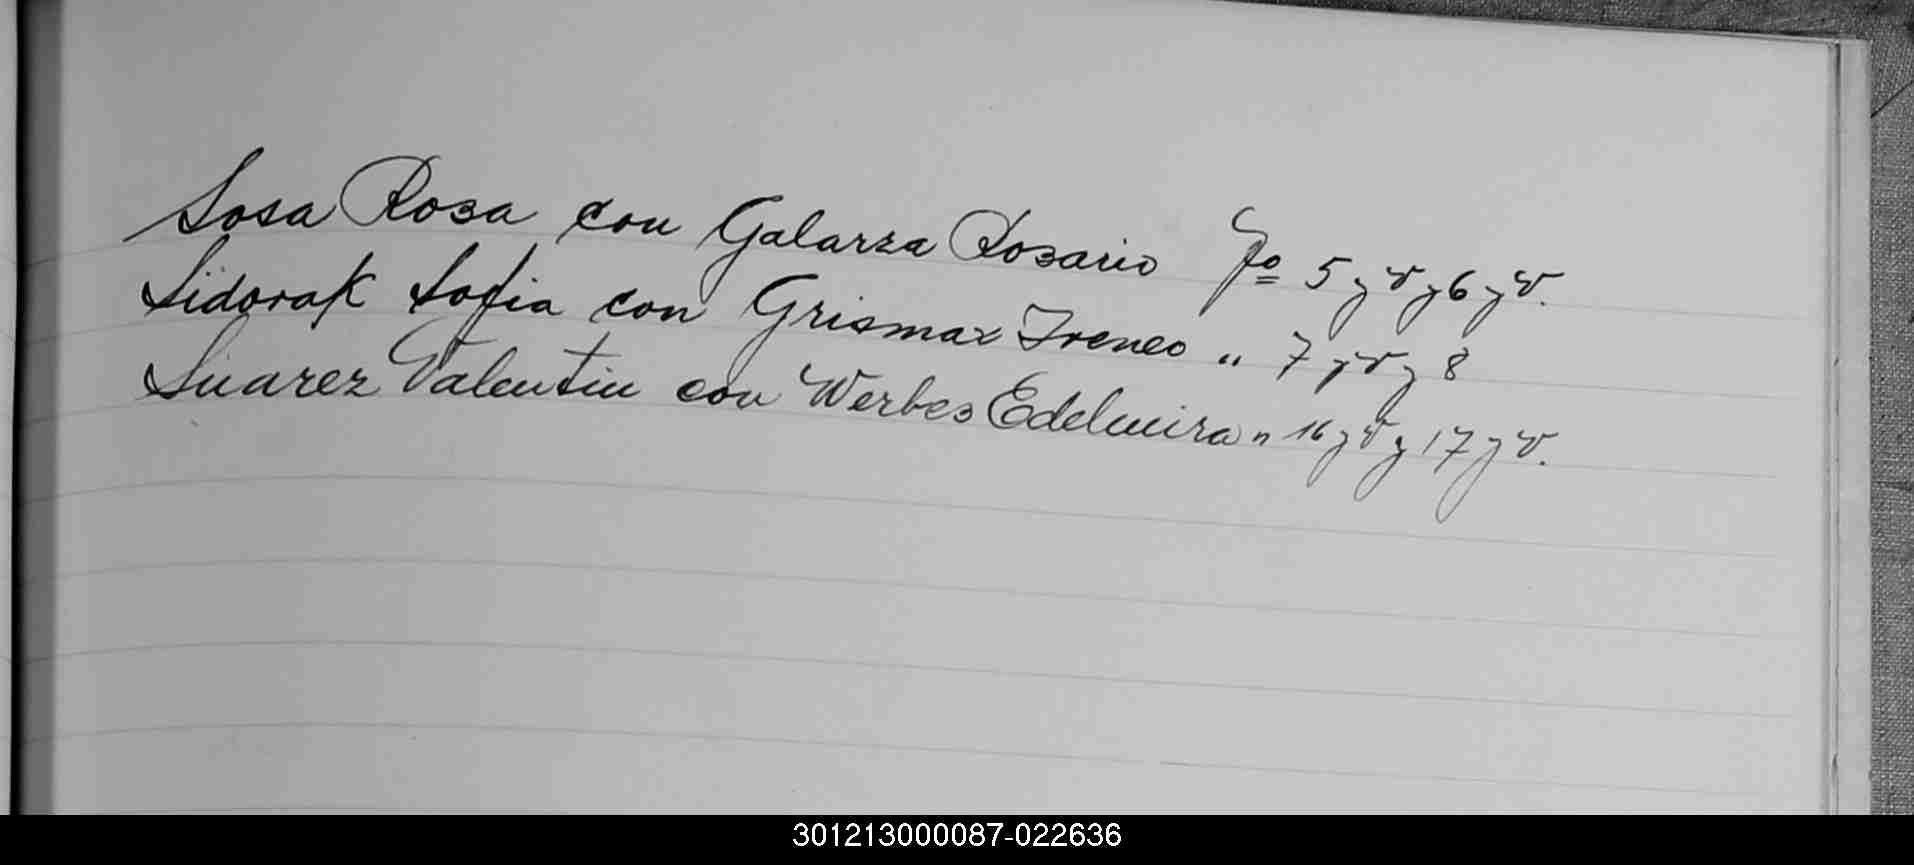 Sosa Rosa con Galarza Rosario fº 5 y v y 6 y v.
Sidorak Sofia con Grismax Ireneo " 7 y v y 8
Suarez Valentin con Werbes Edelmira " 16 y v y 17 y v.
301213000087-022636